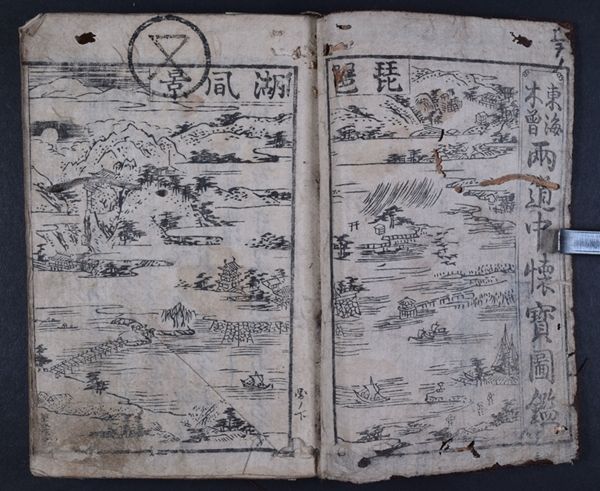 東海
木曾
兩道中懐寶圖鑑
琵琶
湖風景